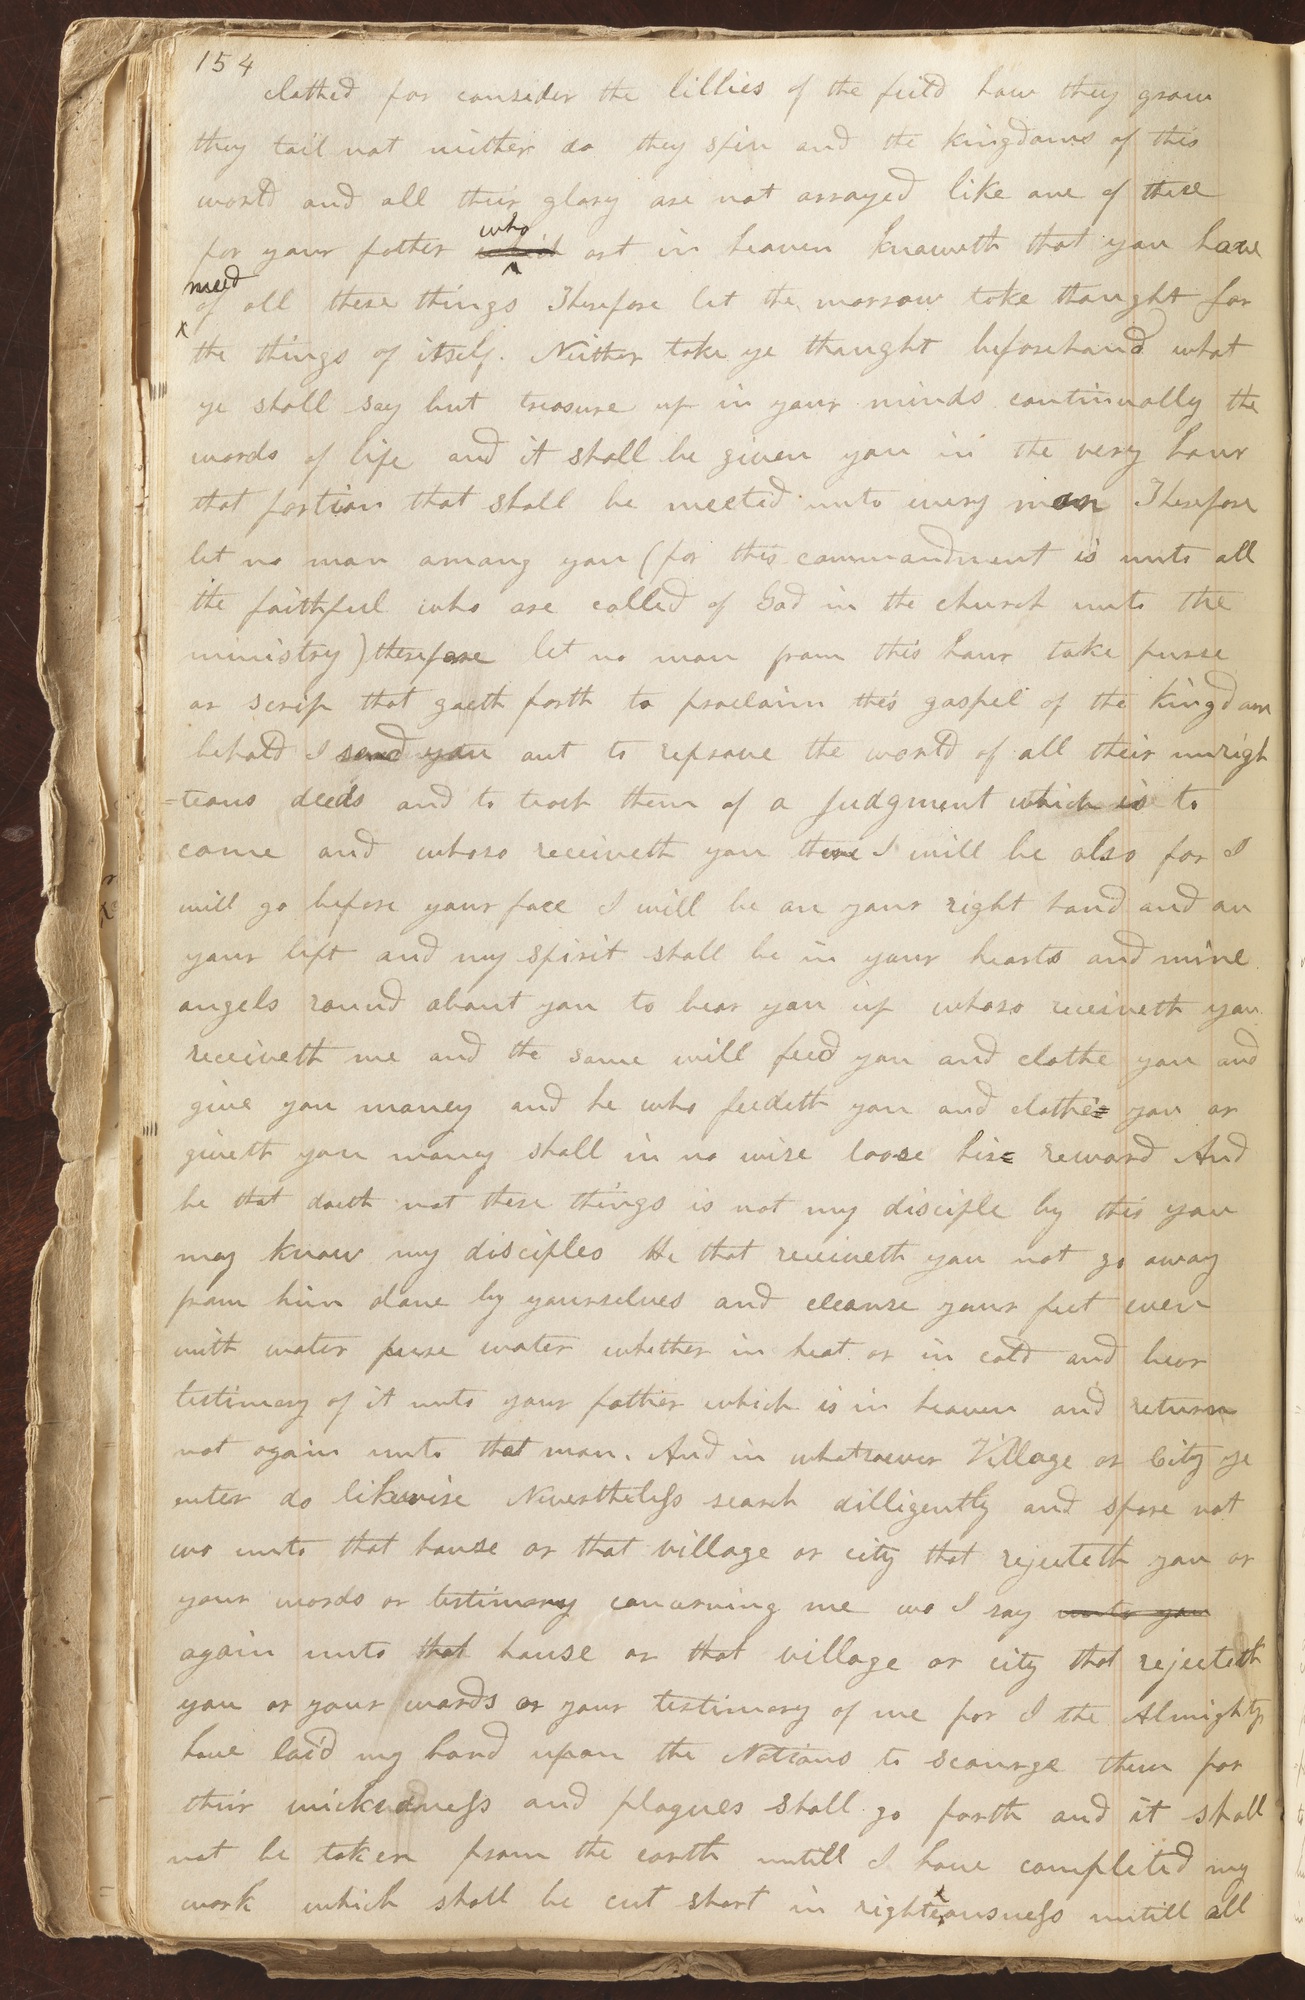 154
clothed for consider the lillies of the feild how they grow
they toil not niether do they spin and the kingdoms of this
world and all their glory are not arrayed like one of these
for your father which who art in heaven knoweth that you have
need of all these things Therefore let the morrow take thought for
the things of itself. Neither take ye thought beforehand what
ye shall say but treasure up in your minds continually the
words of life and it shall be given you in the very hour
that portion that shall be meeted unto every man Therefore
let no man among you (for this commandment is unto all
the faithful who are called of God in the church unto the
ministry) therefore let no man from this hour take purse
or scrip that goeth forth to proclaim this gospel of the kingdom
behold I send you out to reprove the world of all their unrigh
=teous deeds and to teach them of a judgment which is to
come and whoso receiveth you there I will be also for I
will go before your face I will be on your right hand and on
your left and my spirit shall be in your hearts and mine
angels round about you to bear you up whoso receiveth you
receiveth me and the same will feed you and clothe you and
give you money and he who feedeth you and clothe= you or
giveth you money shall in no wise loose his= reward And
he that doeth not these things is not my disciple by this you
may know my disciples He that receiveth you not go away
from him alone by yourselves and cleanse your feet even
with water pure water whether in heat or in cold and bear
testimony of it unto your father which is in heaven and return
not again unto that man. And in whatsoever Village or City ye
enter do likewise Nevertheless search dilligently and spare not
wo unto that house or that village or city that rejecteth you or
your words or testimony concerning me wo I say unto you
again unto that house or that village or city that rejecteth
you or your words or your testimony of me for I the Almighty
have laid my hand upon the Nations to scourge them for
their wickedness and plagues shall go forth and it shall
not be taken from the earth untill I have completed my
work which shall be cut short in righteousness untill all